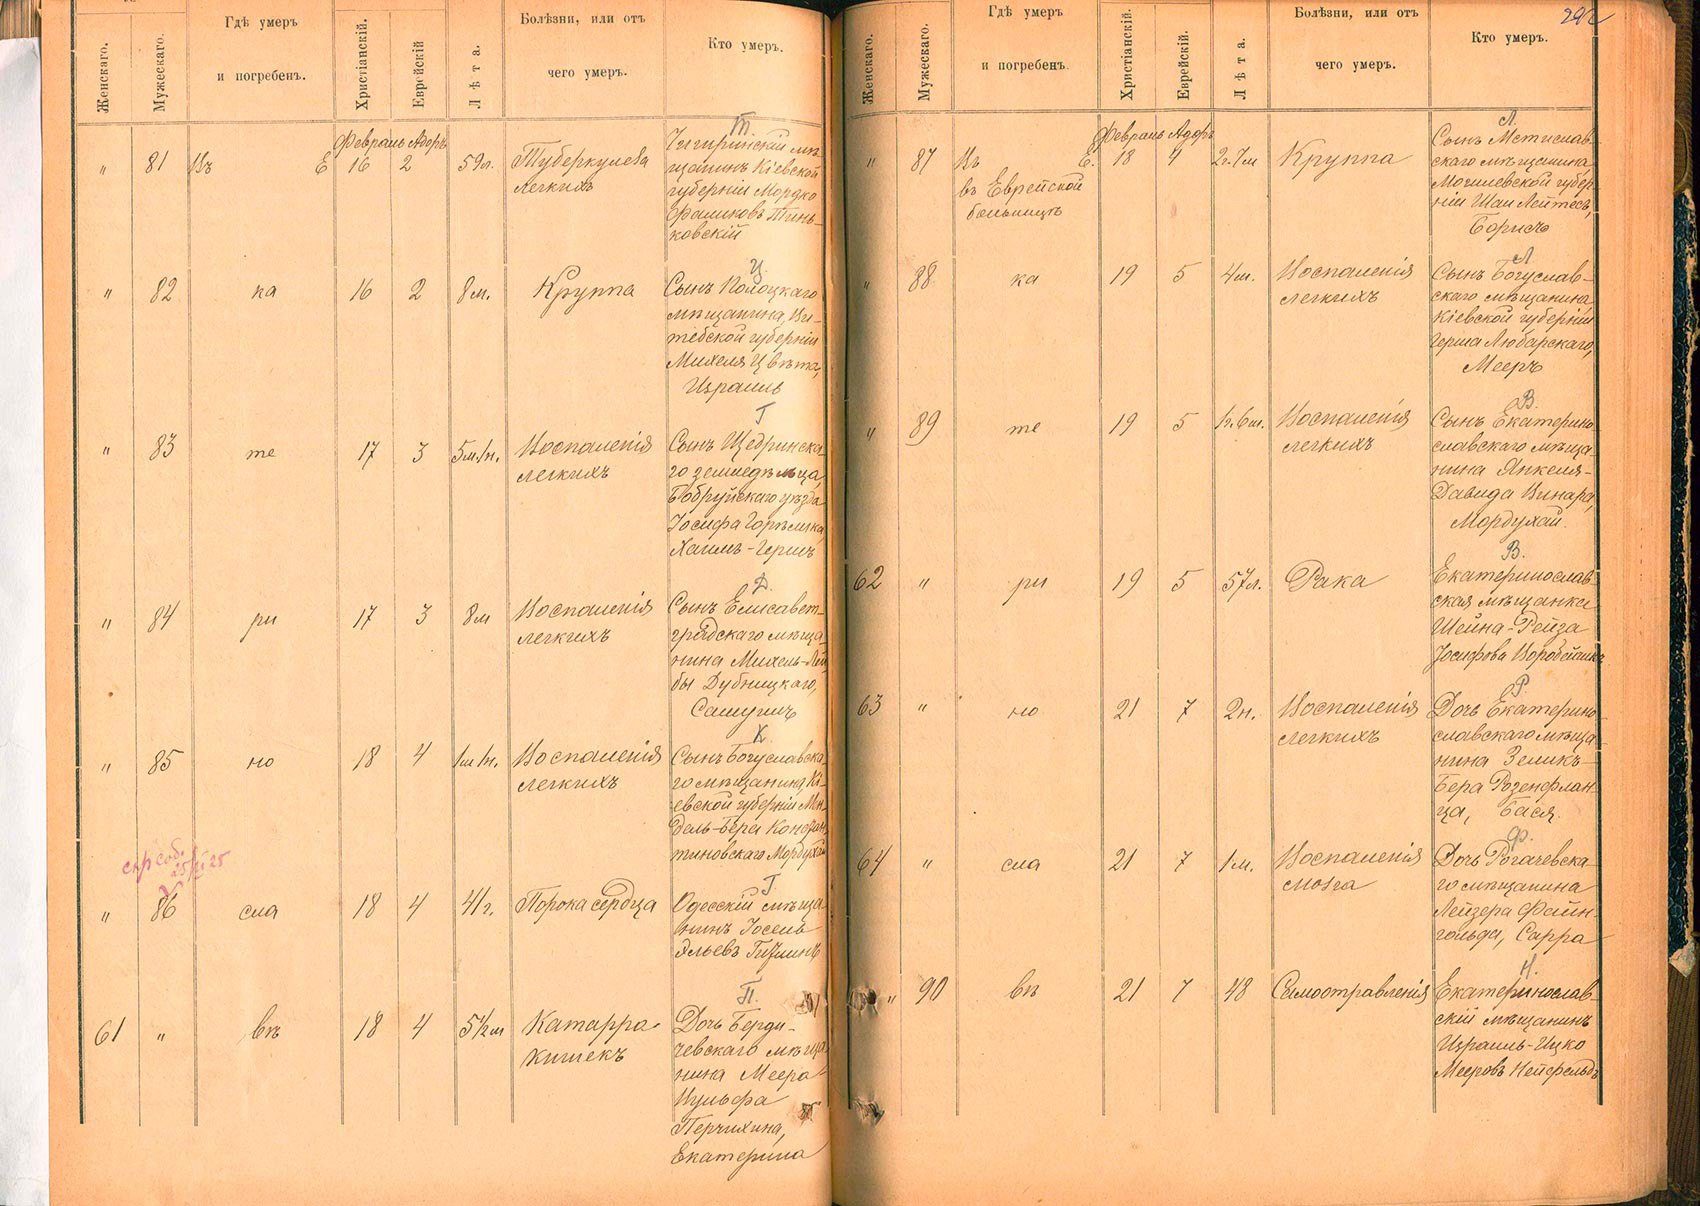 Женскаго.
Мужескаго.
Гдѣ умеръ
и погребенъ.
Христіанскій.
Еврейскій
Лѣта.
Болѣзни, или отъ
чего умеръ.
Кто умеръ.
Февраль Адоръ
" 81 Въ Е 16 2 59л. Туберкулеза
легкихъ
Т.
Чигиринскій мѣ-
щанинъ Кіевской
губерніи Мордко
Фроимовъ Тинь-
ковскій
" 82 ка 16 2 8м. Круппа
Ц.
Сынъ Полоцкаго
мѣщанина, Ви-
тебской губерніи
Михеля Цвѣта,
Израиль
" 83 те 17 3 5м.1н. Воспаленія
легкихъ
Г
Сынъ Щедринска-
го земледѣльца,
Бобруйскаго уѣзда
Іосифа Горѣлика
Хаимъ-Гершъ
" 84 ри 17 3 8м Воспаленія
легкихъ
Д.
Сынъ Елисавет-
градскаго мѣща-
нина Михель-Лей
бы Дубницкаго,
Самуилъ
" 85 но 18 4 1м1н. Воспаленія
легкихъ
К
Сынъ Богуславска-
го мѣщанина, Кі-
евской губерніи Мен-
дель-Бера Констан-
тиновскаго Мордухай
" 86 сла 18 4 41г. Порока сердца
Г.
Одесскій мѣща-
нинъ Іосель
Эльевъ
61 " въ 18 4 5½м Катарра
кишекъ
П.
Дочь Берди-
чевскаго мѣща-
нина Меера
Вульфа
Перчихина,
Екатерина
292
Женскаго.
Мужескаго.
Гдѣ умеръ
и погребенъ.
Христіанскій.
Еврейскій.
Лѣта.
Болѣзни, или отъ
чего умеръ.
Кто умеръ.
Февраль Адоръ
" 87 Въ Е. 18 4 2г.7м Круппа
въ Еврейской
больницѣ
Л.
Сынъ Мстислав-
скаго мѣщанина
Могилевской губер-
ніи Шаи Лейтесъ,
Борисъ
" 88 ка 19 5 4м. Воспаленія
легкихъ
Л
Сынъ Богуслав-
скаго мѣщанина
Кіевской губерніи
Герша Любарскаго,
Мееръ
" 89 те 19 5 1г.6м. Воспаленія
легкихъ
В.
Сынъ Екатерино-
славскаго мѣща-
нина Янкеля-
Давида Винара,
Мордухай.
62 " ри 19 5 57л. Рака
В.
Екатеринослав-
ская мѣщанка
Шейна-Рейза
Іосифова
63 " но 21 7 2н. Воспаленія
легкихъ
Р.
Дочь Екатерино-
славскаго мѣща-
нина Зеликъ-
Бера Розенфлан-
ца, Бася.
64 " сла 21 7 1м. Воспаленія
мозга
Ф.
Дочь Рогачевска-
го мѣщанина
Лейзера Файн-
гольда, Сарра
" 90 въ 21 7 48 Самоотравленія
Н.
Екатеринослав-
скій мѣщанинъ
Израиль-Ицко
Мееровъ Нейфельдъ